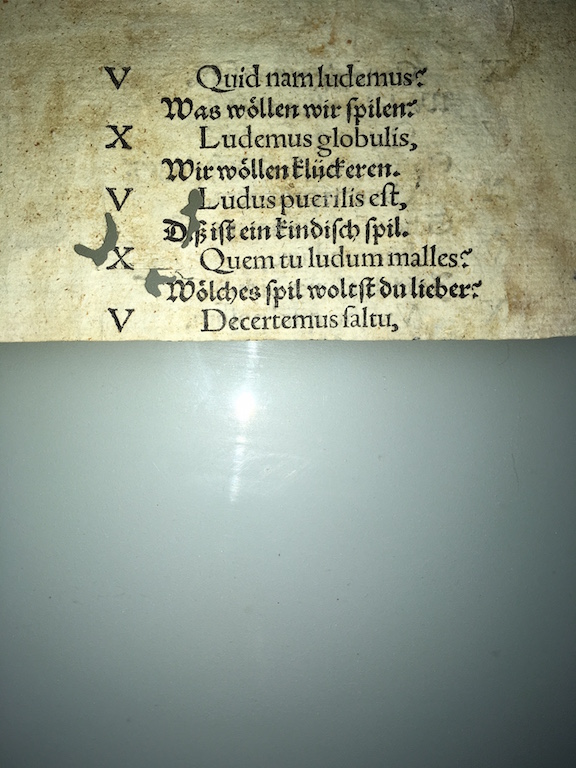 V Quid nam ludemus?
Was wöllen wir ſpilen?
X Ludemus globulis,
Wir wöllen klückeren.
V Ludus puerilis eſt,
Diß iſt ein kindiſch ſpil.
X Quem tu ludum malles?
Wölches ſpil woltſt du lieber?
V Decertemus ſaltu,